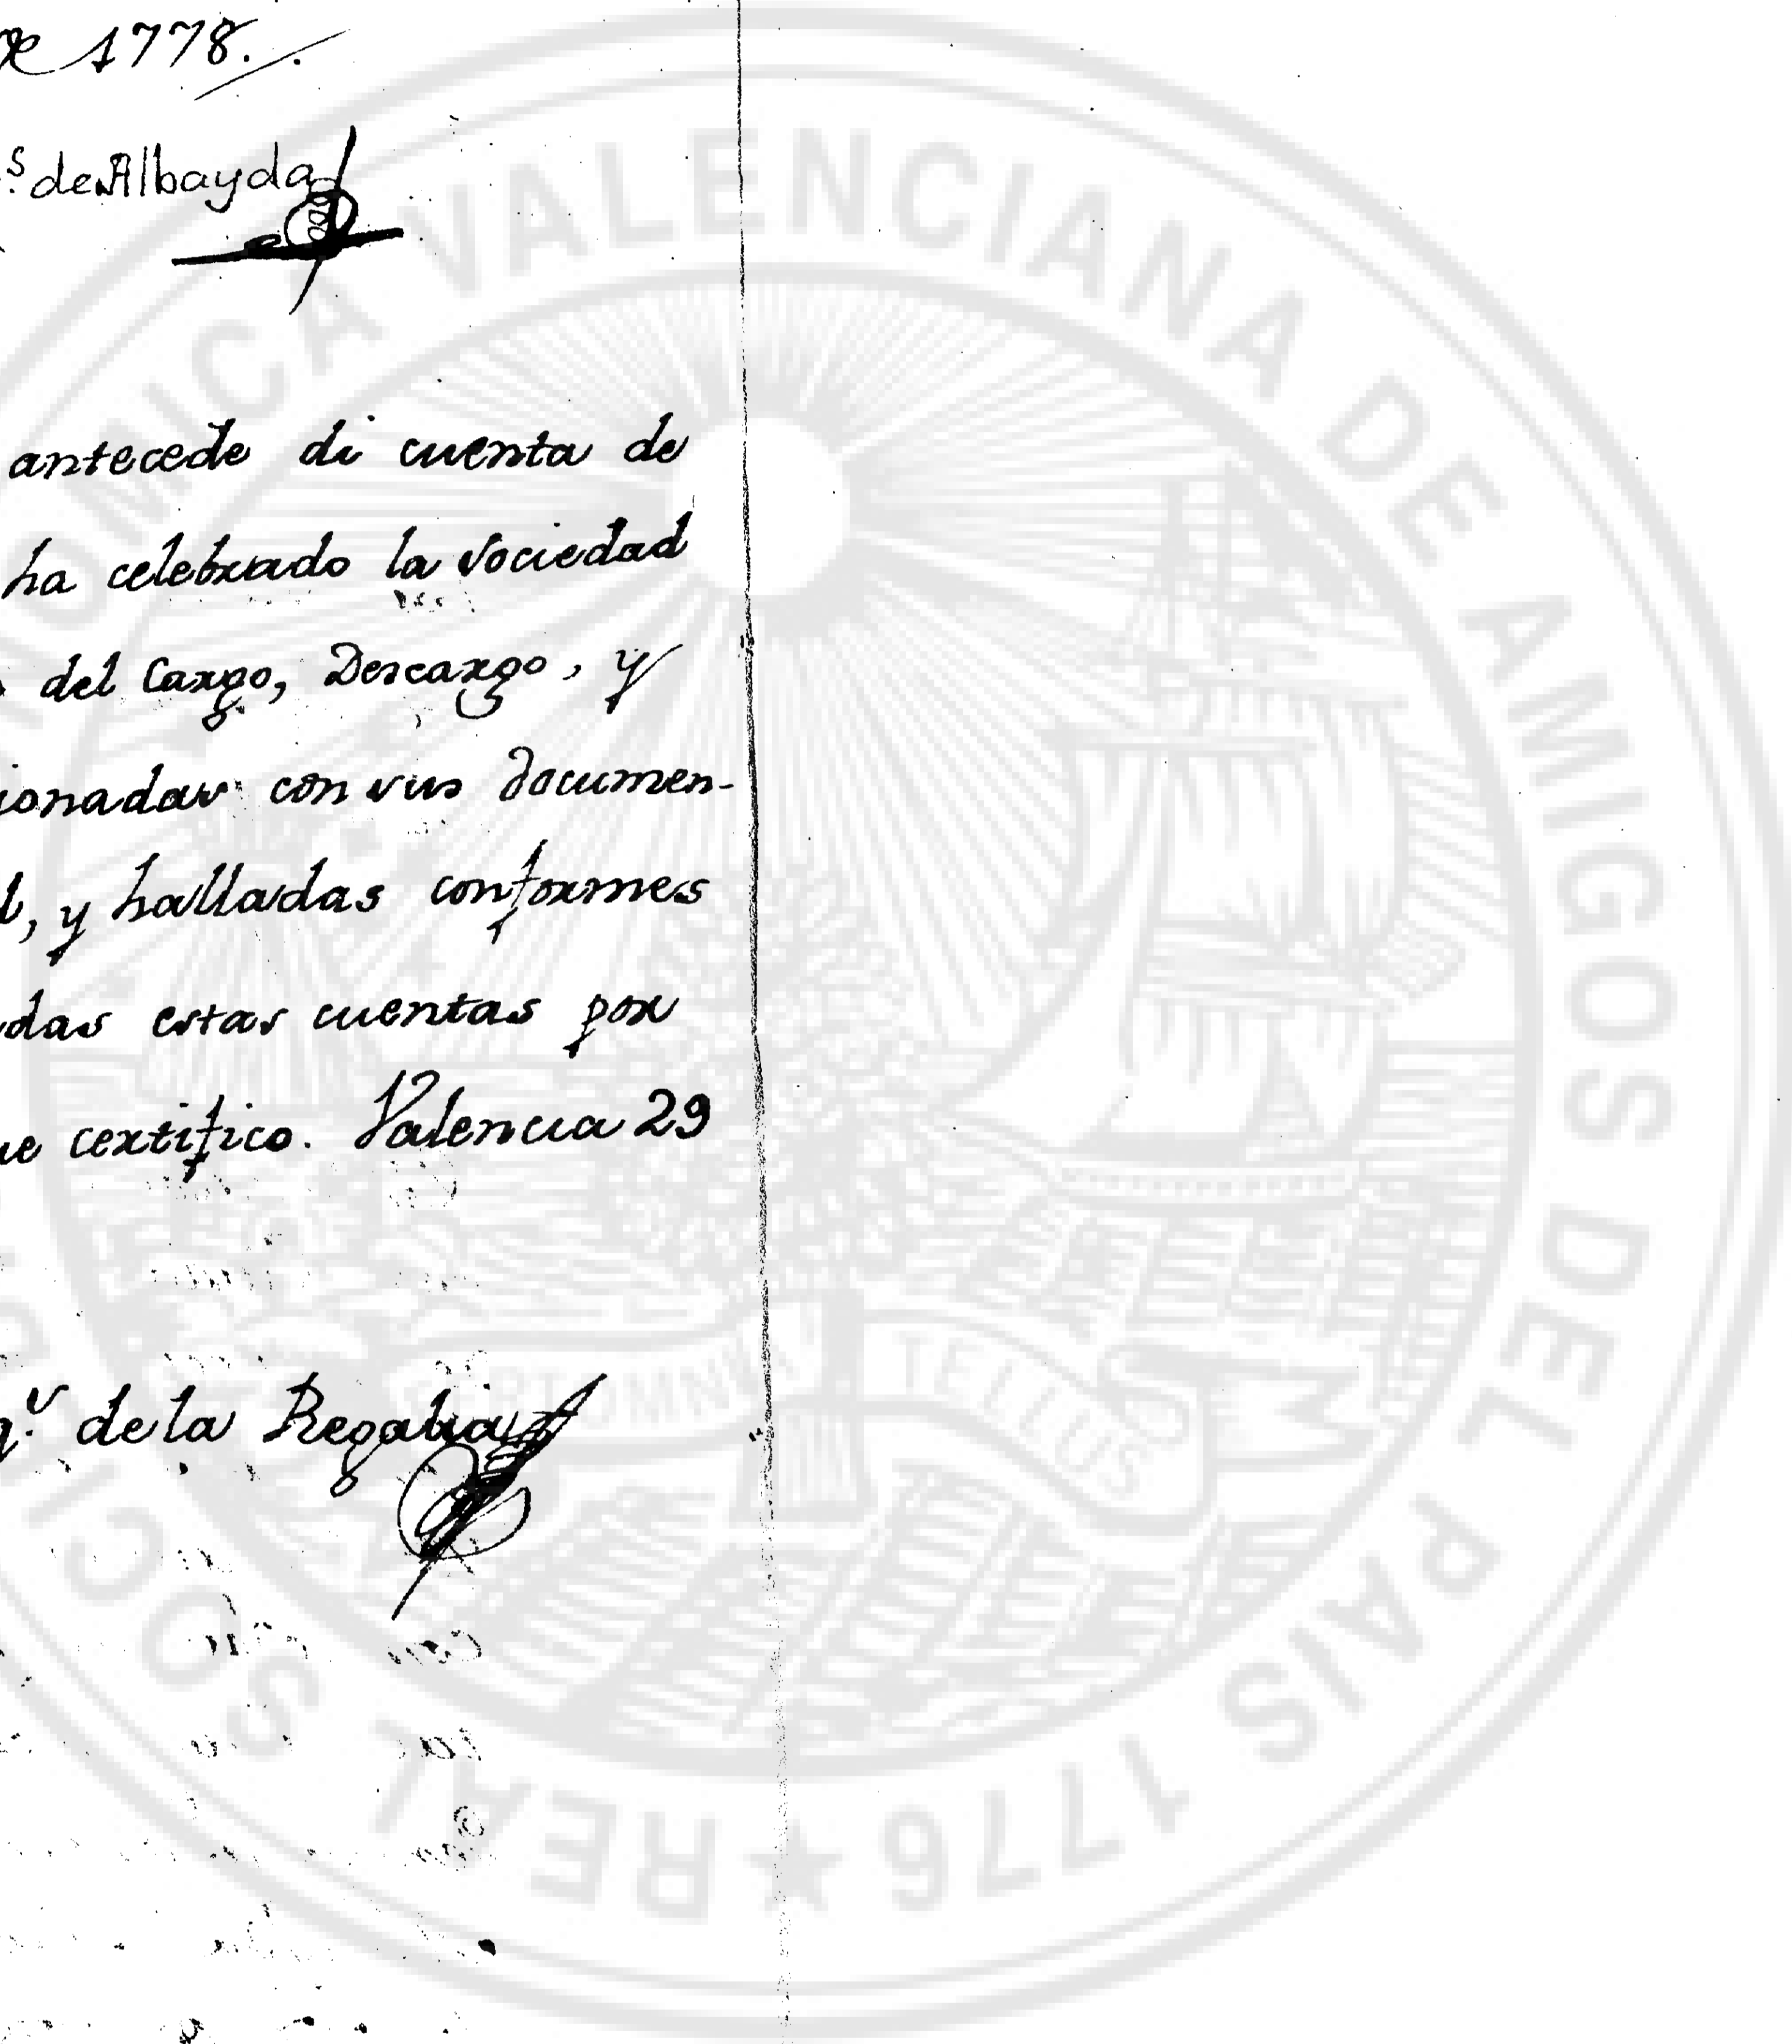 de 1778.
s. de Albayda
antecede di cuenta de
ha celebrado la Sociedad
del Cargo, Descargo, y
ionadas con sus documen-
l, y halladas conformes
das estas cuentas por
ue certifico. Valencia 29
q.s de la Regalia
REAL SOCI
OMICA VALENCIANA DE AMIGOS DEL PAIS 1776